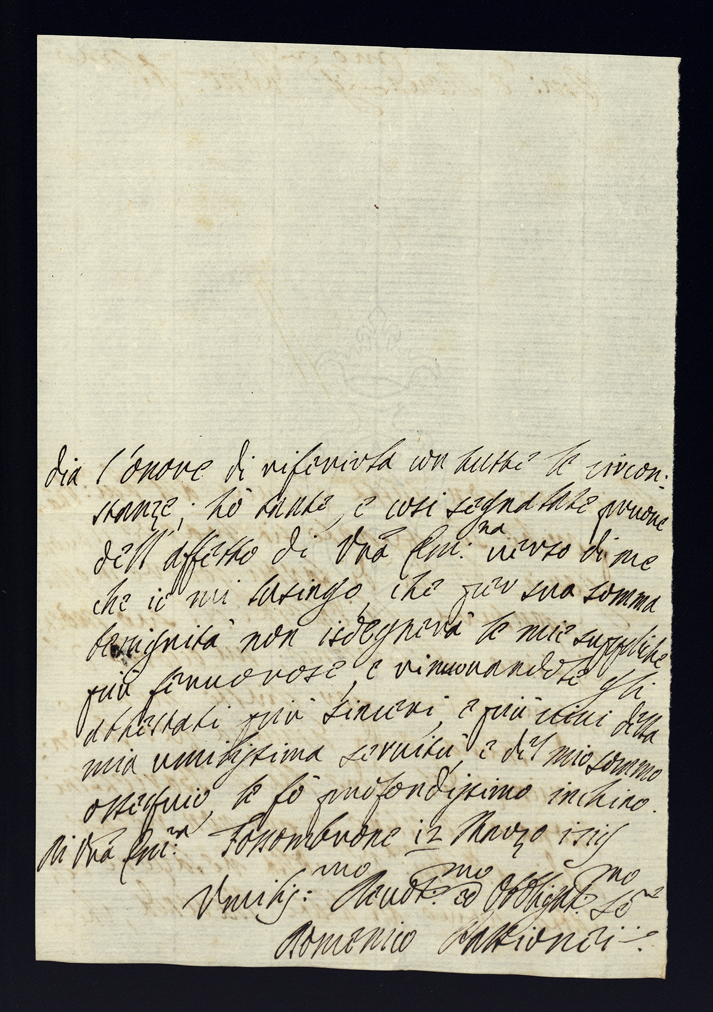 dia l'onore di riferirla con tutte le circon-
stanze; hò tante, e così segnalate pruove
dell'affetto di Vrã Em:na verso di me
che io mi lusingo, che per sua somma
benignità non isdegnerà le mie suppliche
più fervorose, e rinnovandole gli
attestati più sinceri, e più vivi della
mia umilissima servitù, e del mio sommo
ossequio, le fò profondissimo inchino.
Di Vrã Em:za Fossombrone 12 Marzo
Umilis:mo Devot:mo ed Obbligat:mo
Domenico Passionei